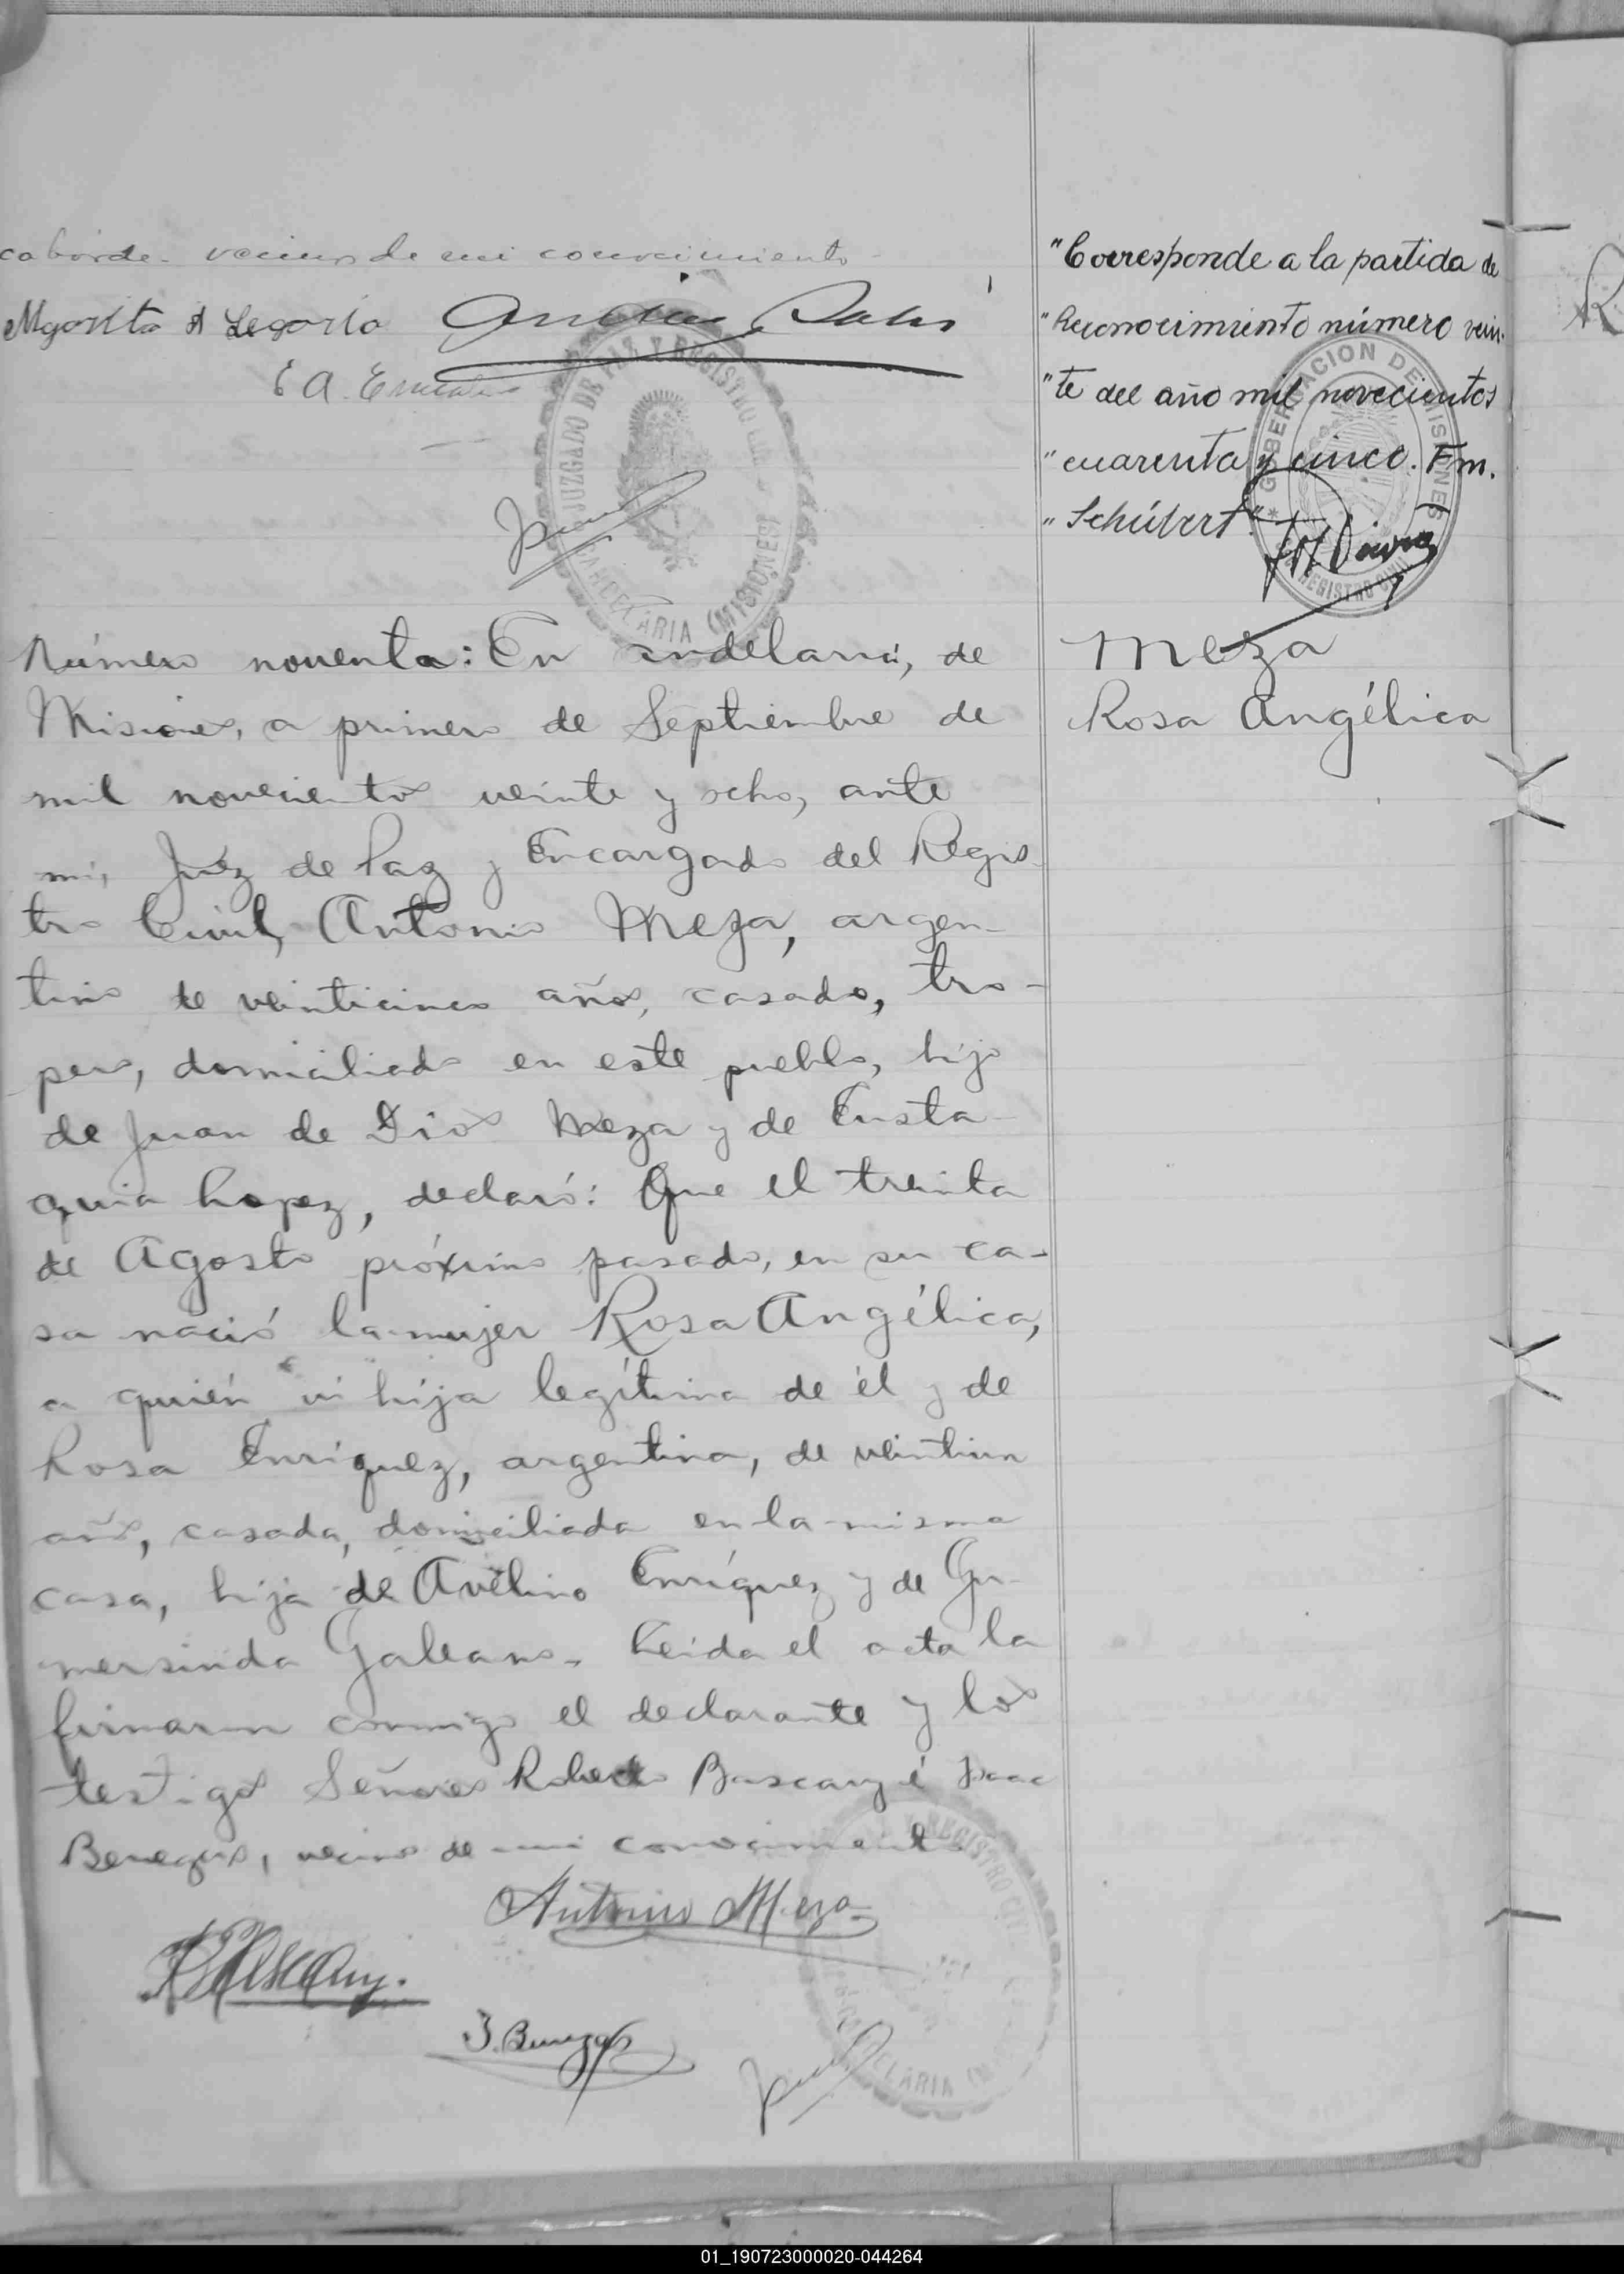 caborde. vecinos de mi conocimiento.
Mgarita A Legario
E A.
JUZGADO DE PAZ Y REGISTRO CIVIL
CANDELARIA (MISIONES)
"Corresponde a la partida de
"Reconocimiento número vein-
"te del año mil novecientos
"cuarenta y cinco. Fm.
"Schübert".
GOBERNACION DE MISIONES
REGISTRO CIVIL
Número noventa: En Candelaria, de
Misiones, a primero de Septiembre de
mil novecientos veinte y ocho, ante
mi, Juez de Paz y Encargado del Regis-
tro Civil, Antonio Meza, argen-
tino de veinticinco años, casado, tro-
pero, domiciliado en este pueblo, hijo
de Juan de Dios Meza y de Eusta-
quia Lopez, declaró: Que el treinta
de Agosto próximo pasado, en su ca-
sa nació la mujer Rosa Angélica,
a quién vi hija legítima de él y de
Rosa Enríquez, argentina, de veintiun
años, casada, domiciliada en la misma
casa, hija de Avelino Enríquez y de Gu-
mersinda Galeano. Leida el acta la
firmaron conmigo el declarante y los
testigos Señores Roberto Bascary é Isaac
Benegas, vecinos de mi conocimiento
Meza
Rosa Angélica
Antonio Meza
RBascary.
I. Benegas
REGISTRO CIVIL
CANDELARIA
01_190723000020-044264